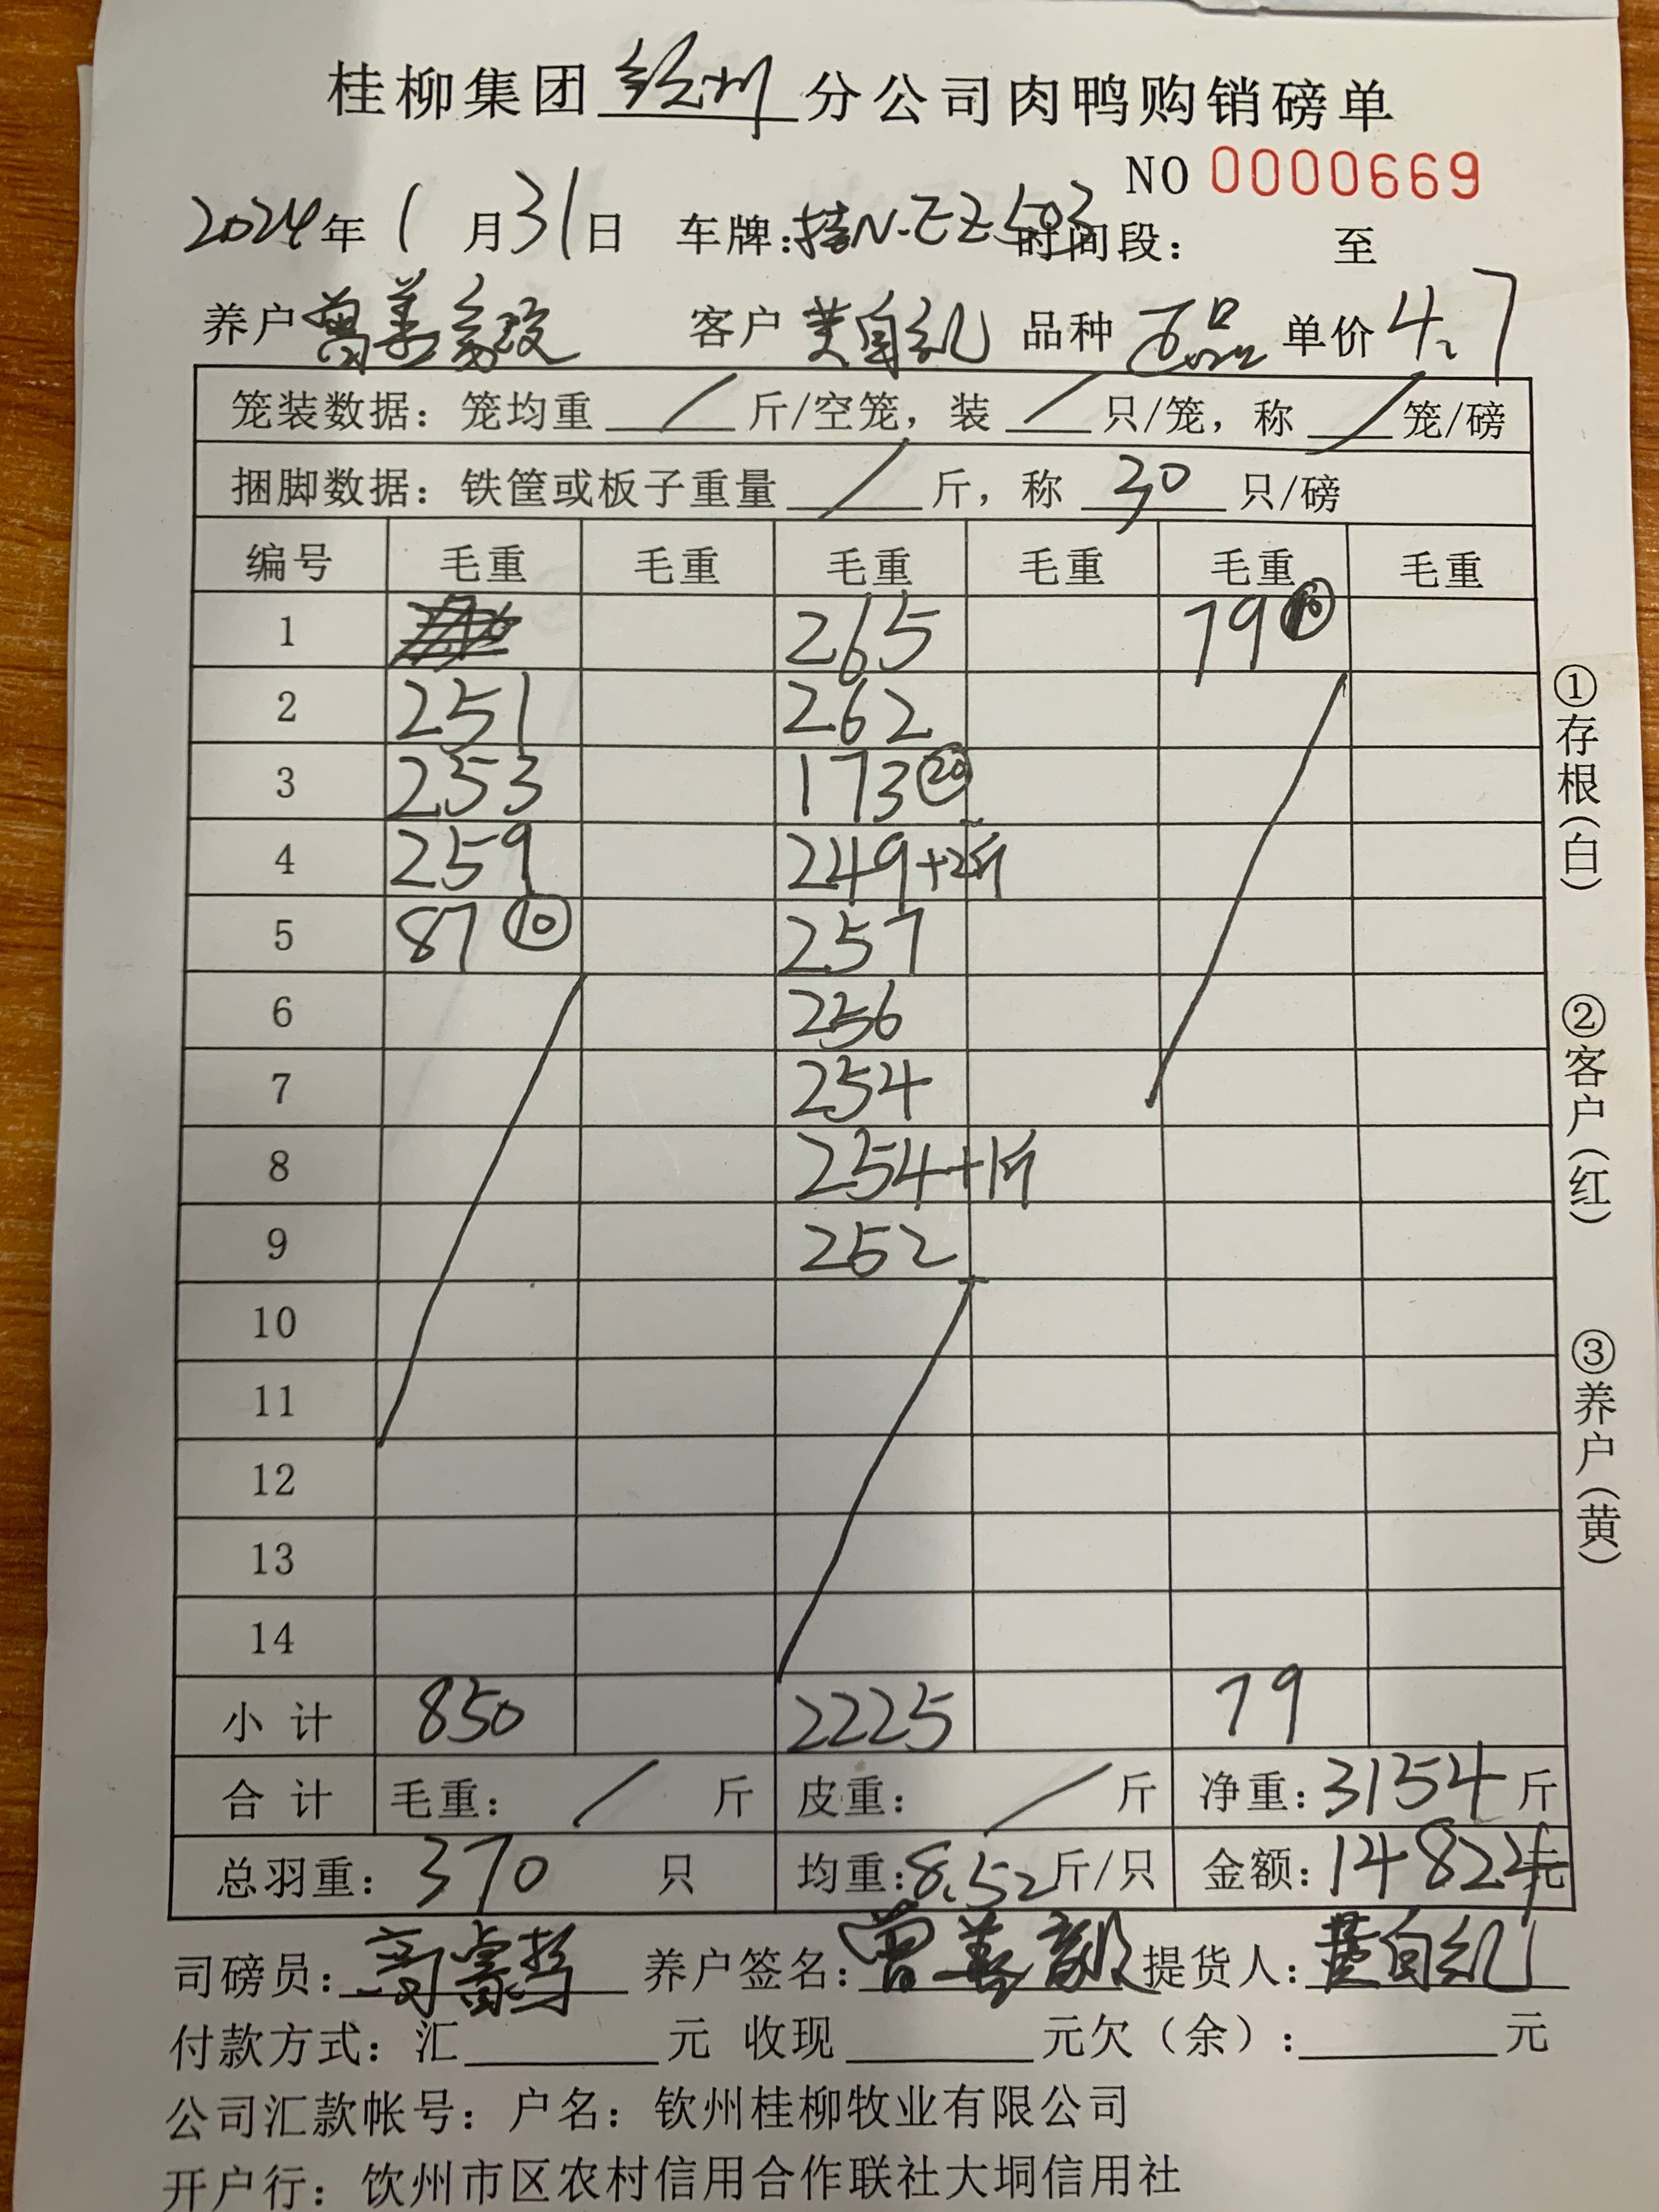 桂柳集团钦州分公司肉鸭购销磅单
NO 0000669
2024年1月31日 车牌:桂N·EZ503 时间段: 至
养户曾善毅 客户黄自礼 品种 品 单价4.7
笼装数据:笼均重 / 斤/空笼,装 / 只/笼,称 / 笼/磅
捆脚数据:铁筐或板子重量 / 斤,称 30 只/磅
编号 毛重 毛重 毛重 毛重 毛重 毛重
1 265 79⑩
2 251 262
3 253 173⑳
4 259 249+2斤
5 87⑩ 257
6 256
7 254
8 254+1斤
9 252
10
11
12
13
14
小计 850 2225 79
合计 毛重: / 斤 皮重: / 斤 净重:3154斤
总羽重:370 只 均重:8.52斤/只 金额:14824元
司磅员: 养户签名:曾善毅 提货人:黄自礼
付款方式:汇 元 收现 元欠(余): 元
公司汇款帐号:户名:钦州桂柳牧业有限公司
开户行:钦州市区农村信用合作联社大垌信用社
①存根(白)
②客户(红)
③养户(黄)